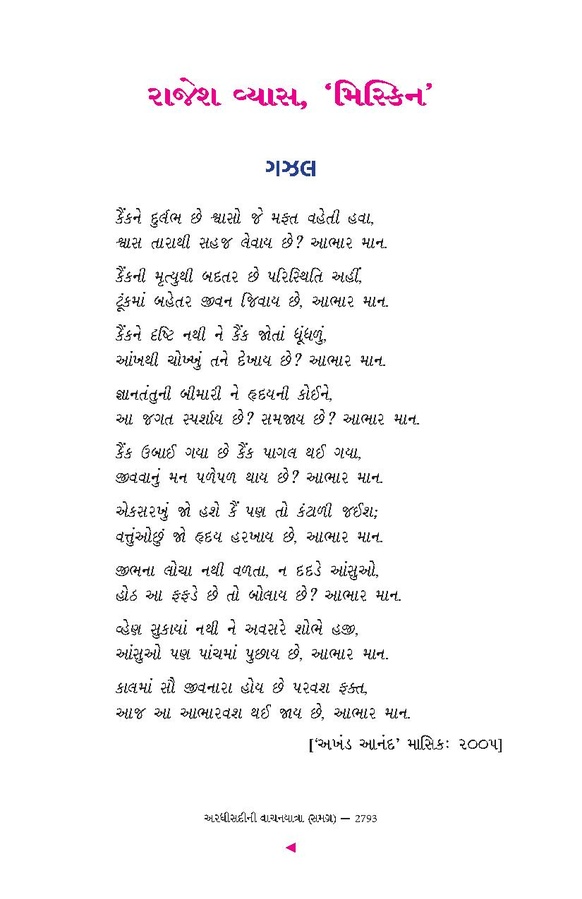 રાજેશ વ્યાસ, ‘મિસ્કિન’
ગઝલ
કૈંકને દુર્લભ છે શ્વાસો જે મફત વહેતી હવા,
શ્વાસ તારાથી સહજ લેવાય છે? આભાર માન.
કૈંકની મૃત્યુથી બદતર છે પરિસ્થિતિ અહીં,
ટૂંકમાં બહેતર જીવન જિવાય છે, આભાર માન.
કૈંકને દૃષ્ટિ નથી ને કૈંક જોતાં ધૂંધળું,
આંખથી ચોખ્ખું તને દેખાય છે? આભાર માન.
જ્ઞાનતંતુની બીમારી ને હૃદયની કોઈને,
આ જગત સ્પર્શાય છે? સમજાય છે? આભાર માન.
કૈંક ઉબાઈ ગયા છે કૈંક પાગલ થઈ ગયા,
જીવવાનું મન પળેપળ થાય છે? આભાર માન.
એકસરખું જો હશે કૈં પણ તો કંટાળી જઈશ;
વત્તુંઓછું જો હૃદય હરખાય છે, આભાર માન.
જીભના લોચા નથી વળતા, ન દદડે આંસુઓ,
હોઠ આ ફફડે છે તો બોલાય છે? આભાર માન.
વ્હેણ સુકાયાં નથી ને અવસરે શોભે હજી,
આંસુઓ પણ પાંચમાં પુછાય છે, આભાર માન.
કાલમાં સૌ જીવનારા હોય છે પરવશ ફક્ત,
આજ આ આભારવશ થઈ જાય છે, આભાર માન.
[‘અખંડ આનંદ’ માસિક: ૨૦૦૫]
અરધીસદીની વાચનયાત્રા (સમગ્ર) — 2793
◀